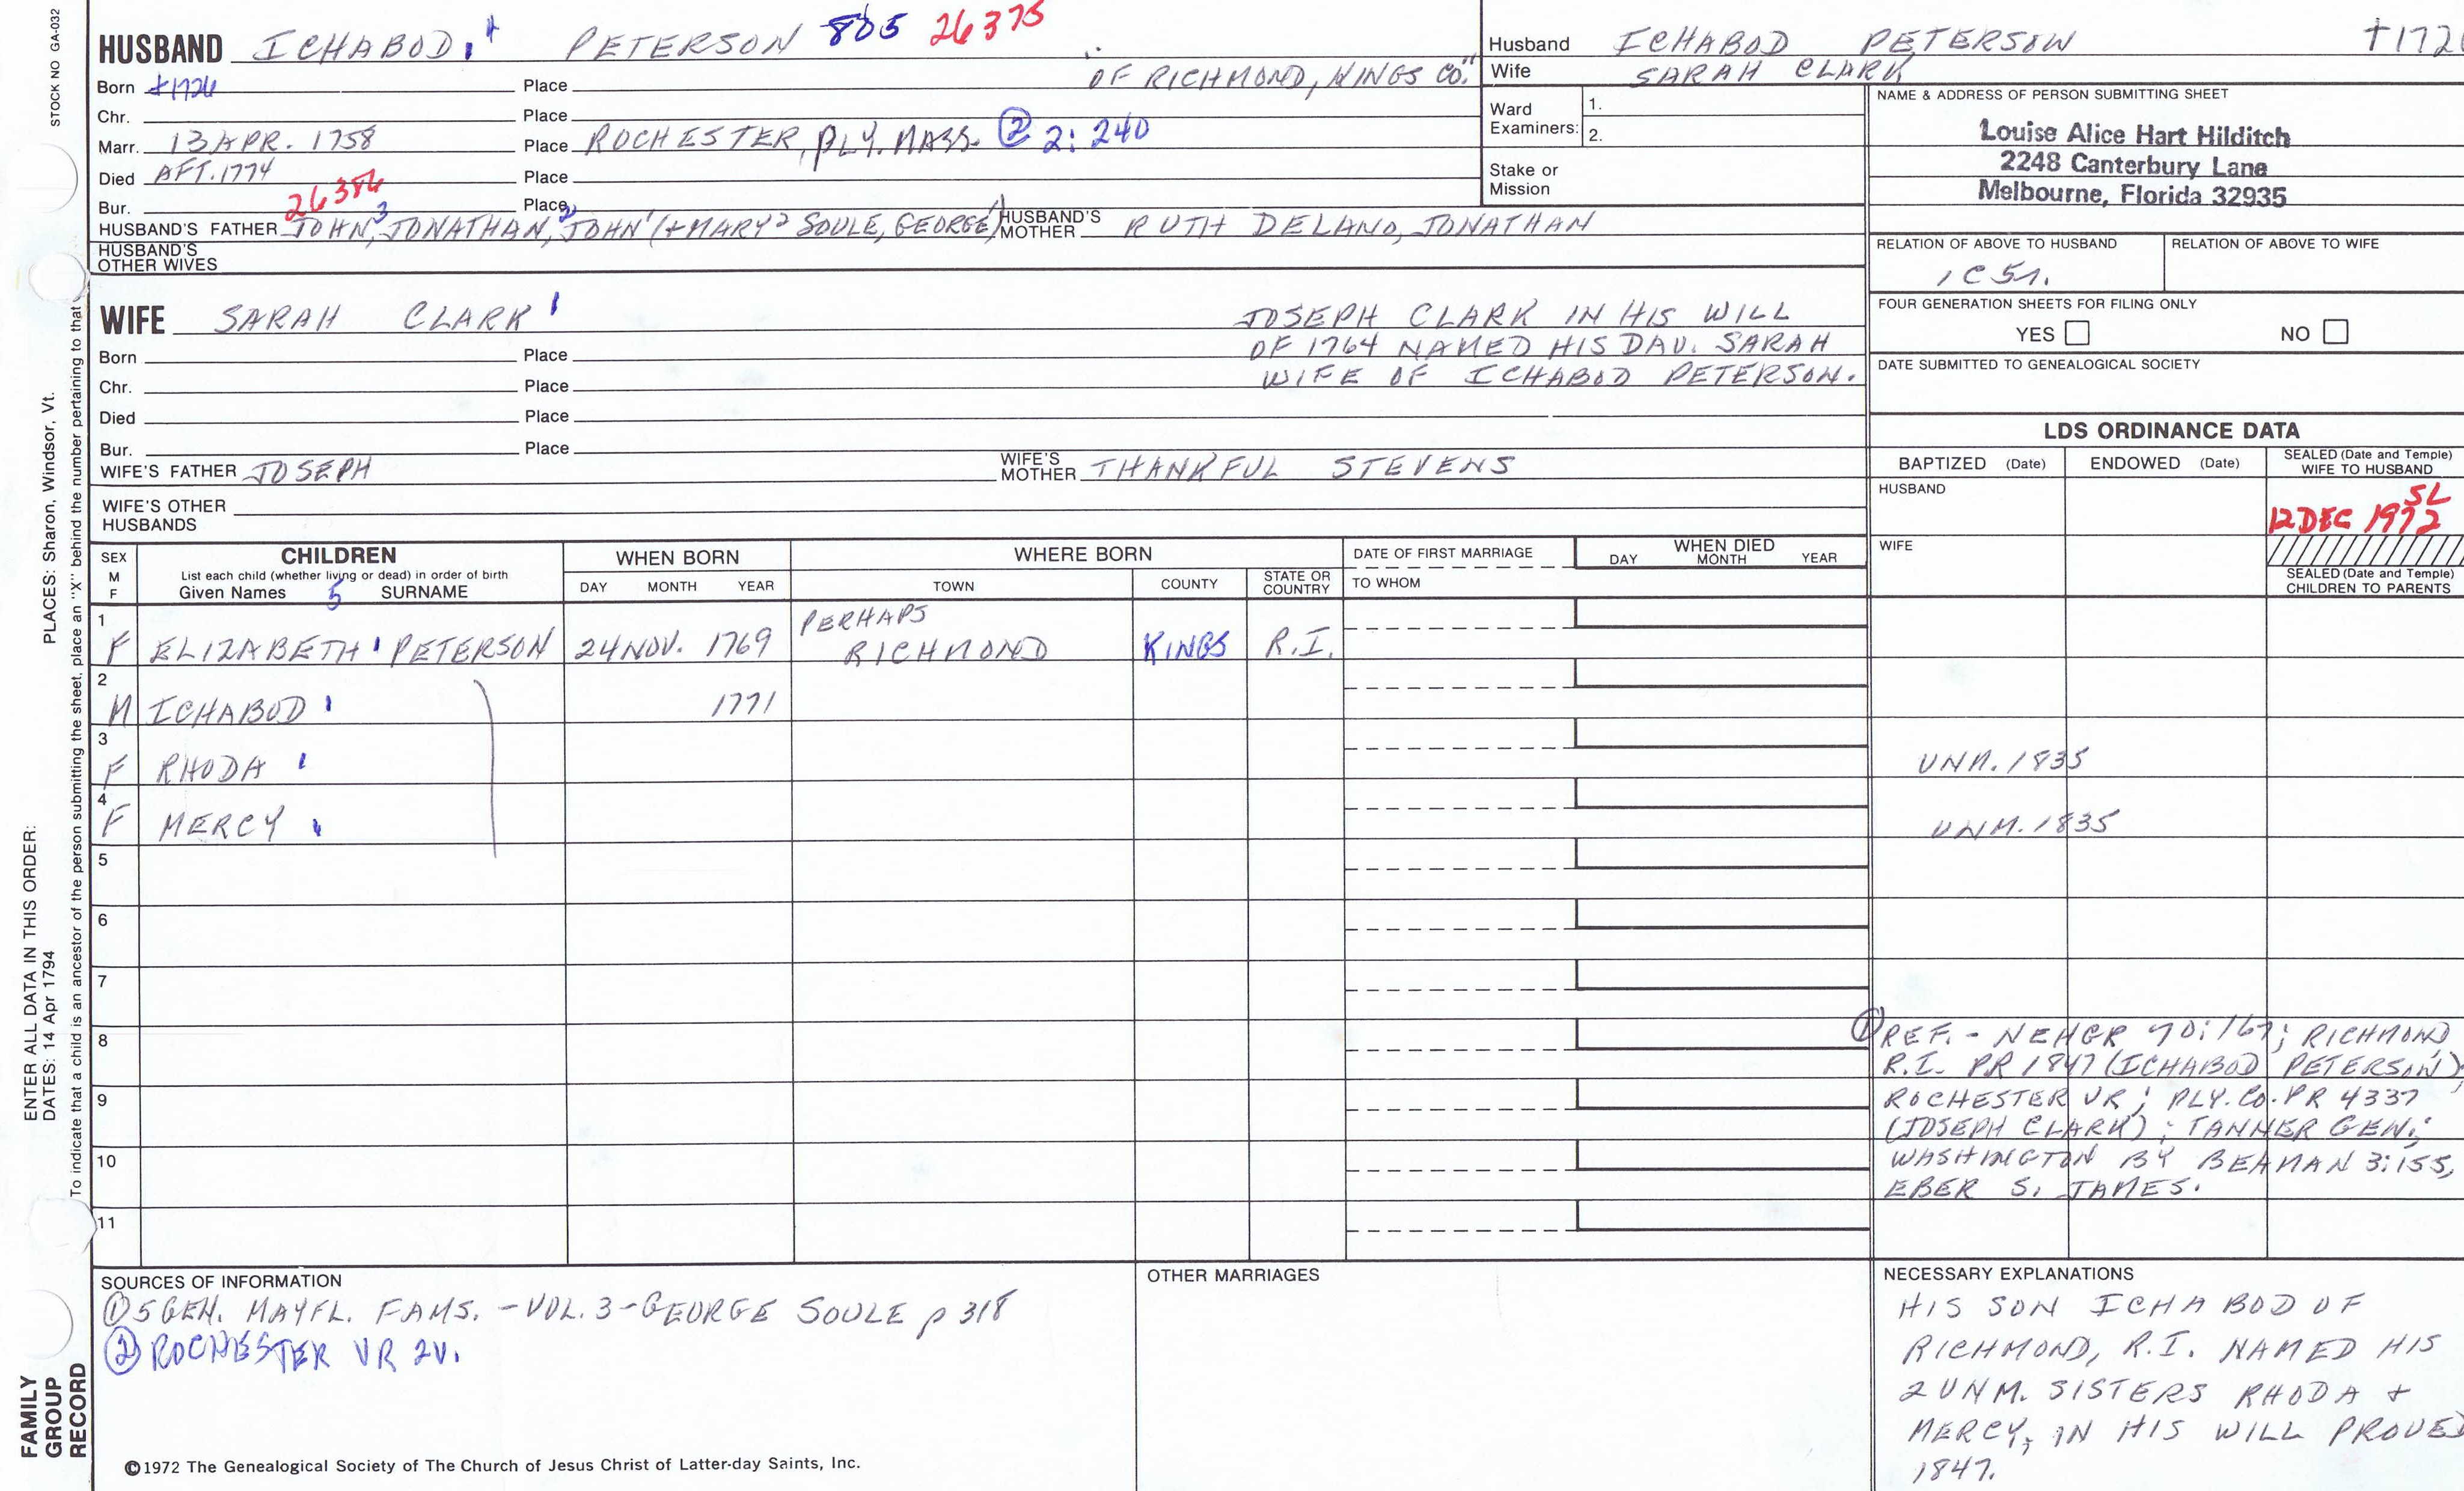 STOCK NO GA-032
HUSBAND ICHABOD 4 PETERSON 805 26375
Born +1726 Place OF RICHMOND, KINGS CO."
Chr. Place
Marr. 13 APR. 1758 Place ROCHESTER, PLY. MASS. ② 2: 240
Died AFT. 1774 Place
Bur. 26386 Place
HUSBAND'S FATHER JOHN 3, JONATHAN, 2 JOHN 1 (+MARY 2 SOULE, GEORGE 1) HUSBAND'S MOTHER RUTH DELANO, JONATHAN
HUSBAND'S OTHER WIVES
WIFE SARAH CLARK 1
JOSEPH CLARK IN HIS WILL
OF 1764 NAMED HIS DAU. SARAH
WIFE OF ICHABOD PETERSON.
Born Place
Chr. Place
Died Place
Bur. Place
WIFE'S FATHER JOSEPH WIFE'S MOTHER THANKFUL STEVENS
WIFE'S OTHER HUSBANDS
Husband ICHABOD PETERSON +172
Wife SARAH CLARK
Ward Examiners: 1.
2.
Stake or Mission
NAME & ADDRESS OF PERSON SUBMITTING SHEET
Louise Alice Hart Hilditch
2248 Canterbury Lane
Melbourne, Florida 32935
RELATION OF ABOVE TO HUSBAND RELATION OF ABOVE TO WIFE
1C5r.
FOUR GENERATION SHEETS FOR FILING ONLY
YES NO
DATE SUBMITTED TO GENEALOGICAL SOCIETY
LDS ORDINANCE DATA
BAPTIZED (Date) ENDOWED (Date) SEALED (Date and Temple) WIFE TO HUSBAND
HUSBAND SL
12 DEC 1972
WIFE
SEALED (Date and Temple)
CHILDREN TO PARENTS
SEX M F CHILDREN WHEN BORN WHERE BORN DATE OF FIRST MARRIAGE WHEN DIED
List each child (whether living or dead) in order of birth
Given Names 5 SURNAME DAY MONTH YEAR TOWN COUNTY STATE OR COUNTRY TO WHOM DAY MONTH YEAR
1 PERHAPS
F ELIZABETH 1 PETERSON 24 NOV. 1769 RICHMOND KINGS R.I.
2
M ICHABOD 1 1771
3
F RHODA 1 UNM. 1835
4
F MERCY 1 UNM. 1835
5
6
7
8
9
10
11
① REF. - NEHGR 70:167; RICHMOND
R.I. PR 1847 (ICHABOD PETERSON);
ROCHESTER VR; PLY. CO. PR 4337
(JOSEPH CLARK); TANNER GEN;
WASHINGTON BY BEAMAN 3:155,
EBER S. JAMES.
SOURCES OF INFORMATION
① 5 GEN. MAYFL. FAMS. - VOL. 3 - GEORGE SOULE p 318
② ROCHESTER VR 2V.
OTHER MARRIAGES
NECESSARY EXPLANATIONS
HIS SON ICHABOD OF
RICHMOND, R.I. NAMED HIS
2 UNM. SISTERS RHODA +
MERCY, IN HIS WILL PROVED
1847.
©1972 The Genealogical Society of The Church of Jesus Christ of Latter-day Saints, Inc.
FAMILY
GROUP
RECORD
ENTER ALL DATA IN THIS ORDER:
DATES: 14 Apr 1794 PLACES: Sharon, Windsor, Vt.
To indicate that a child is an ancestor of the person submitting the sheet, place an "X" behind the number pertaining to that